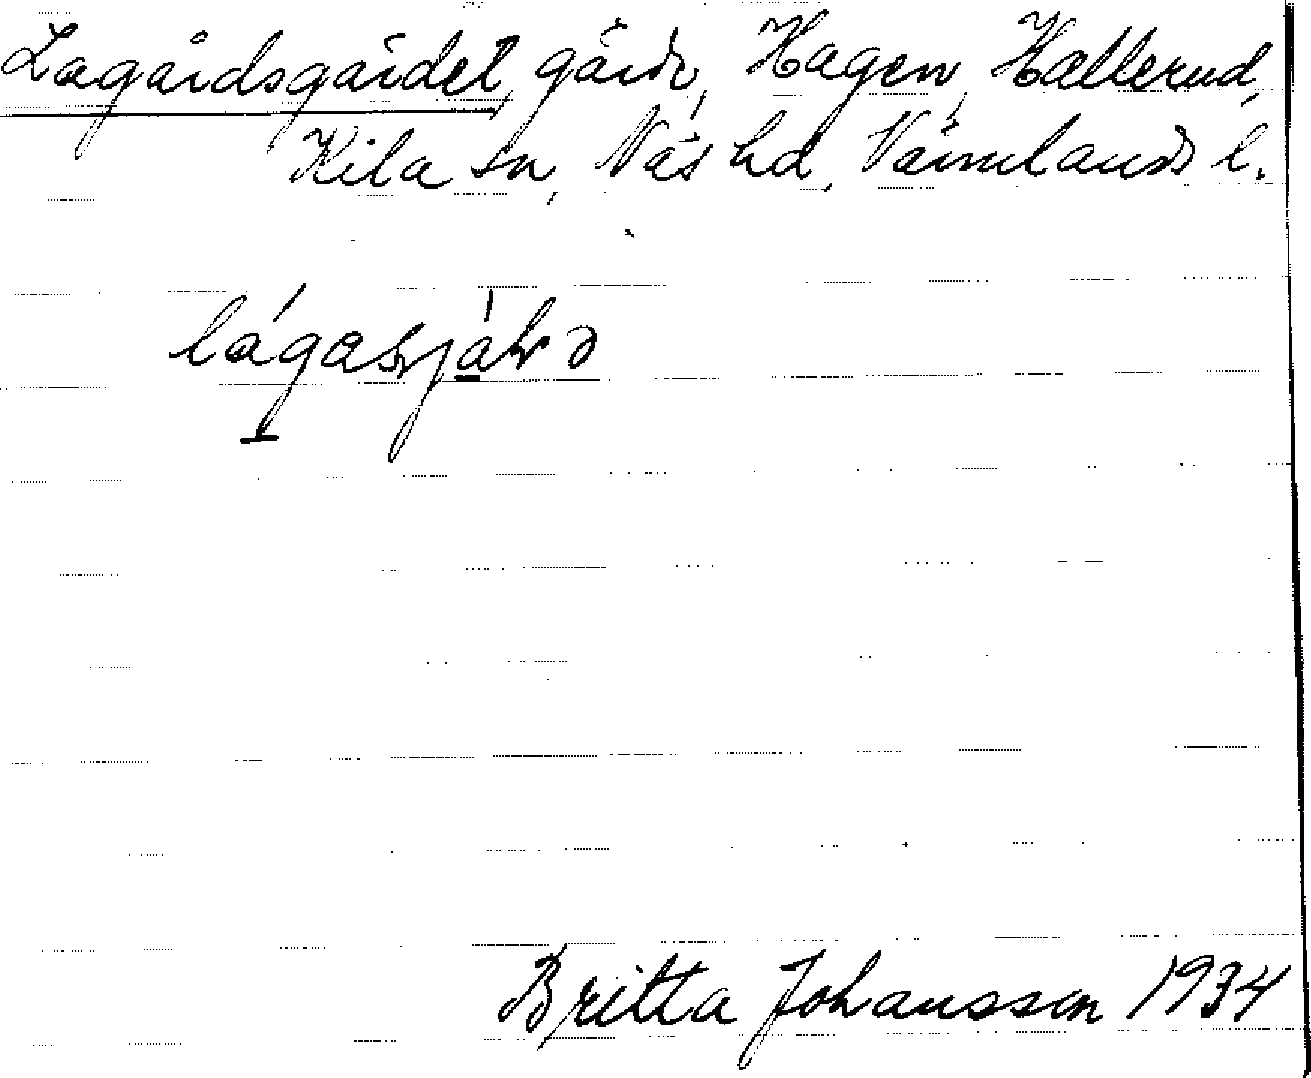 Lagårdsgärdet, gärde, Hagen, Hallerud,
Kila sn, Näs hd, Värmlands l.
lágasjáƚɐ
Britta Johansson 1934